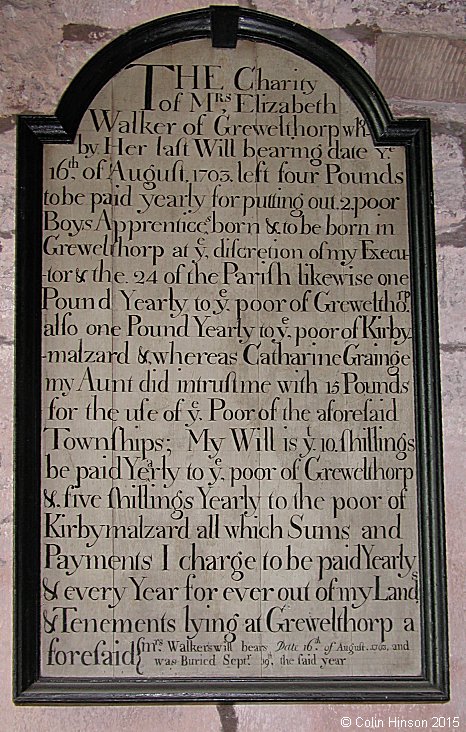 THE Charity
of Mrs Elizabeth
Walker of Grewelthorp wch
by Her last Will bearing date Ye
16th of August, 1703. left four Pounds
to be paid yearly for putting out 2, poor
Boys Apprentices, born & to be born in
Grewelthorp at ye discretion of my Execu-
tor & the 24 of the Parish likewise one
Pound Yearly to ye poor of Grewelthorp
also one Pound Yearly to ye poor of Kirby-
-malzard & whereas Catharine Grainge
my Aunt did intrust me with 15 Pounds
for the use of ye Poor of the aforesaid
Townships; My Will is yt 10 shillings
be paid Yearly to ye poor of Grewelthorp
& five shillings Yearly to the poor of
Kirbymalzard all which Sums and
Payments I charge to be paid Yearly
& every Year for ever out of my Lands
& Tenements lying at Grewelthorp a
foresaid
mrs Walkers will bears Date 16th of August. 1703, and
was Buried Septr 19th, the said year
© Colin Hinson 2015